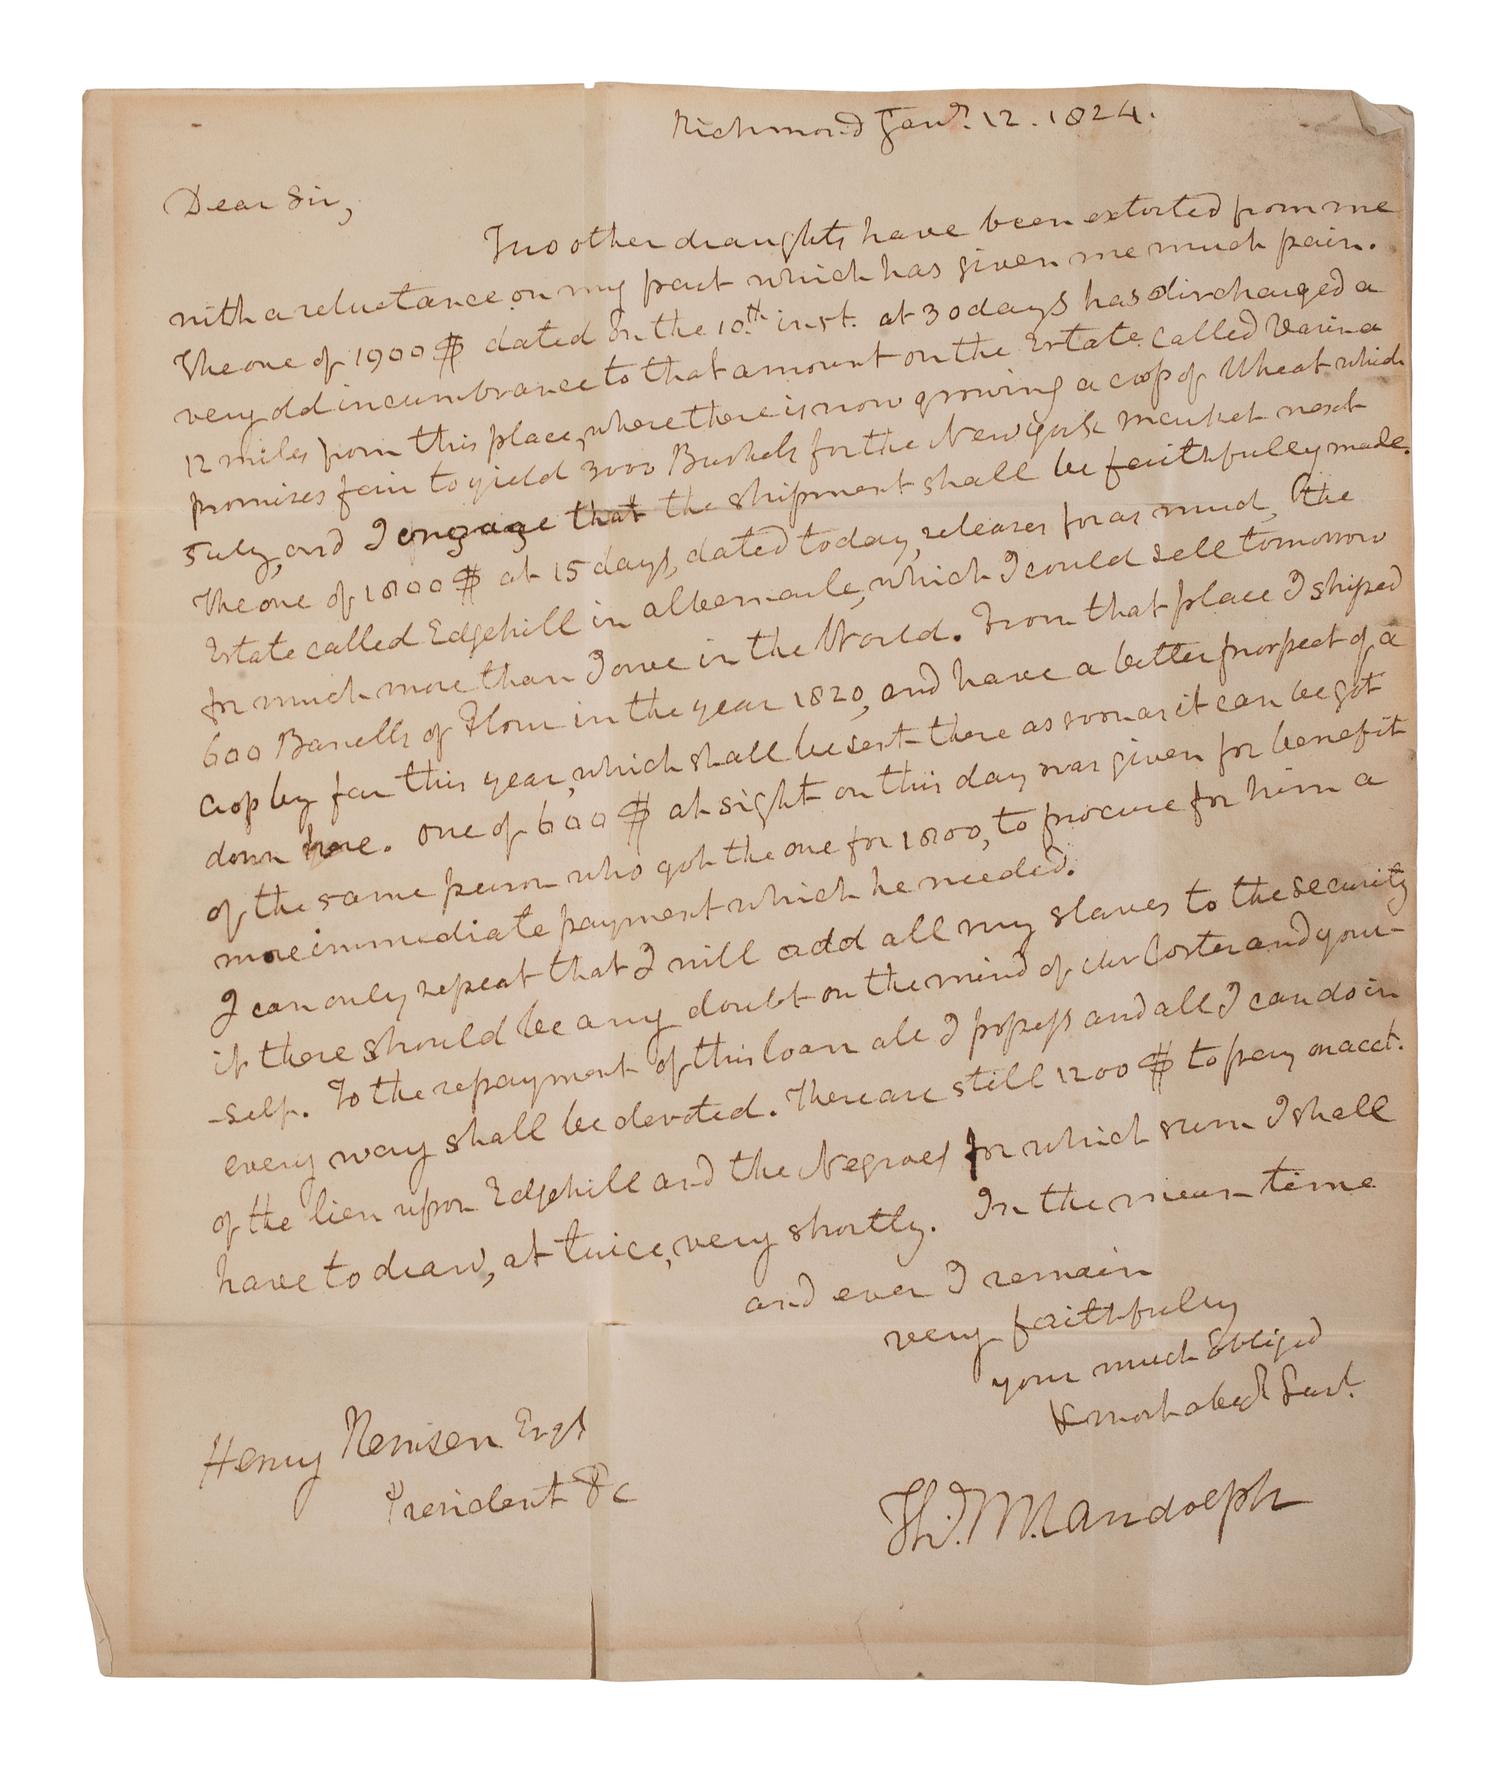 Richmond Jany. 12. 1824.
Dear Sir,
Two other draughts have been extorted from me
with a reluctance on my part which has given me much pain.
The one of 1900 $ dated on the 10.th inst. at 30 days has discharged a
very old incumbrance to that amount on the Estate called Varina
12 miles from this place, where there is now growing a crop of Wheat which
promises fair to yield 3000 Bushels for the New york market next
July, and I engage that the shipment shall be faithfully made.
The one of 1800 $ at 15 days, dated today, releases for as much, the
Estate called Edgehill in albemarle, which I could sell tomorrow
for much more than I owe in the World. From that place I shiped
600 Barrells of Flour in the year 1820, and have a better prospect of a
crop by far this year, which shall be sent there as soon as it can be got
down here. One of 600 $ at sight on this day was given for benefit
of the same person who got the one for 1800, to procure for him a
more immediate payment which he needed.
I can only repeat that I will add all my slaves to the security
if there should be any doubt on the mind of Mr Coster and your-
-self. To the repayment of this loan all I possess and all I can do in
every way shall be devoted. There are still 1200 $ to pay on acct.
of the lien upon Edgehill and the Negroes for which sum I shall
have to draw, at twice, very shortly. In the mean time
and ever I remain
very faithfully
your much Obliged
& most obedt Servt.
Henry Remsen Esqr
President &c
Th. M. Randolph